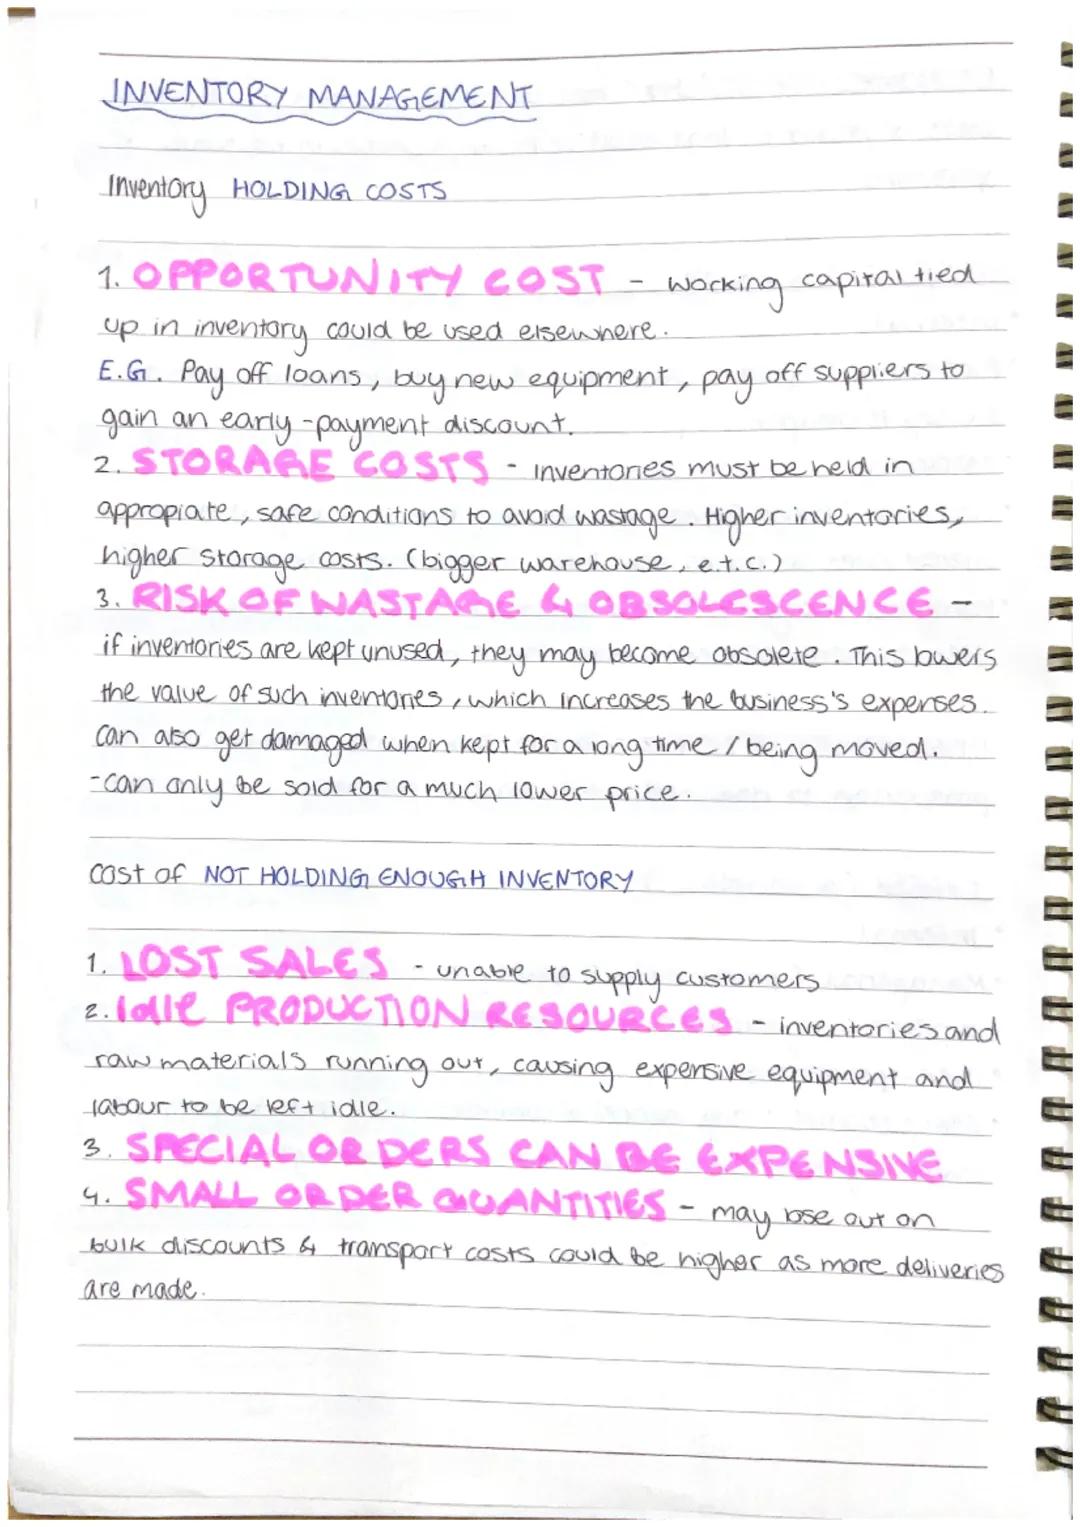 INVENTORY MANAGEMENT
Inventory HOLDING COSTS
1. OPPORTUNITY COST - working capital tied
up in inventory could be used elsewhere.
E.G. Pay off loans, buy new equipment, pay off suppliers to
gain an early-payment discount.
2. STORAGE COSTS - Inventories must be held in
appropiate, safe conditions to avoid wastage. Higher inventories,
higher storage costs. (bigger warehouse, e.t.c.)
3. RISK OF WASTAGE & OBSOLESCENCE -
if inventories are kept unused, they may become obsolete. This lowers
the value of such inventories, which increases the business's expenses.
Can also get damaged when kept for a long time / being moved.
- Can only be sold for a much lower price.
Cost of NOT HOLDING ENOUGH INVENTORY
1. LOST SALES - unable to supply customers
2. Idle PRODUCTION RESOURCES - inventories and
raw materials running out, causing expensive equipment and
labour to be left idle.
3. SPECIAL ORDERS CAN BE EXPENSIVE
4. SMALL ORDER QUANTITIES - may lose out on
bulk discounts & transport costs could be higher as more deliveries
are made.